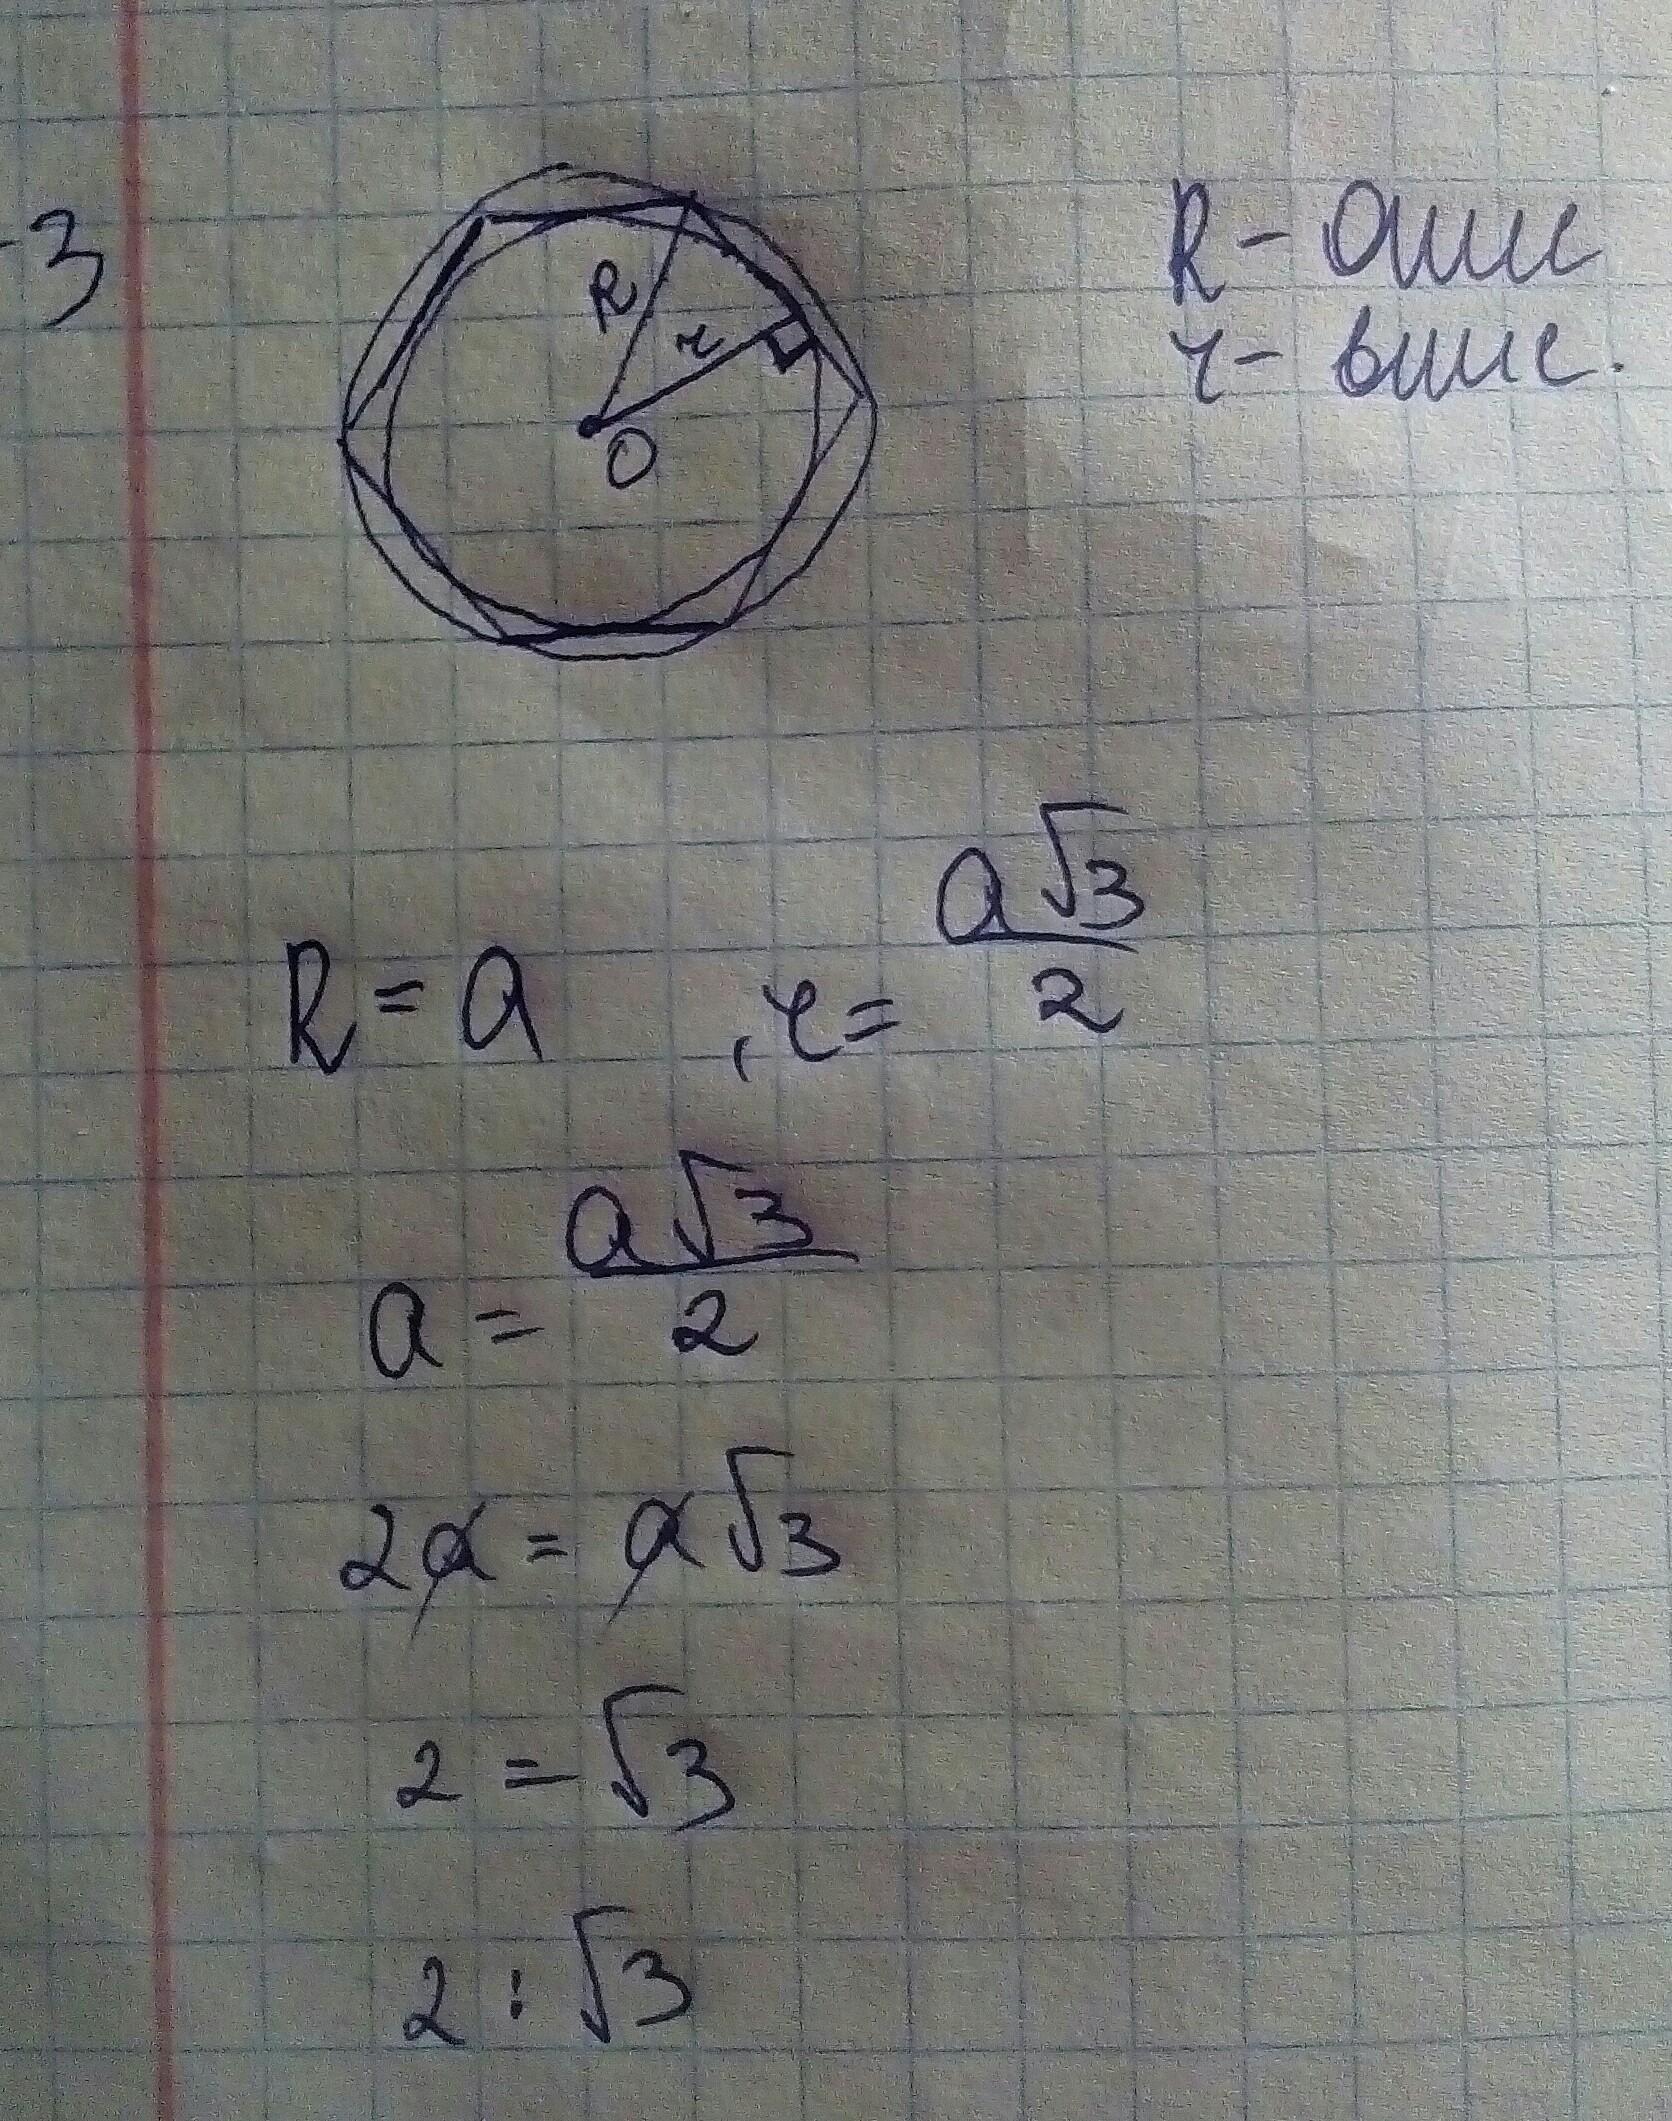 3
R - опис
r - впис.
R
r
O
R = a , r = a√3/2
a = a√3/2
2a = a√3
2 = √3
2 : √3